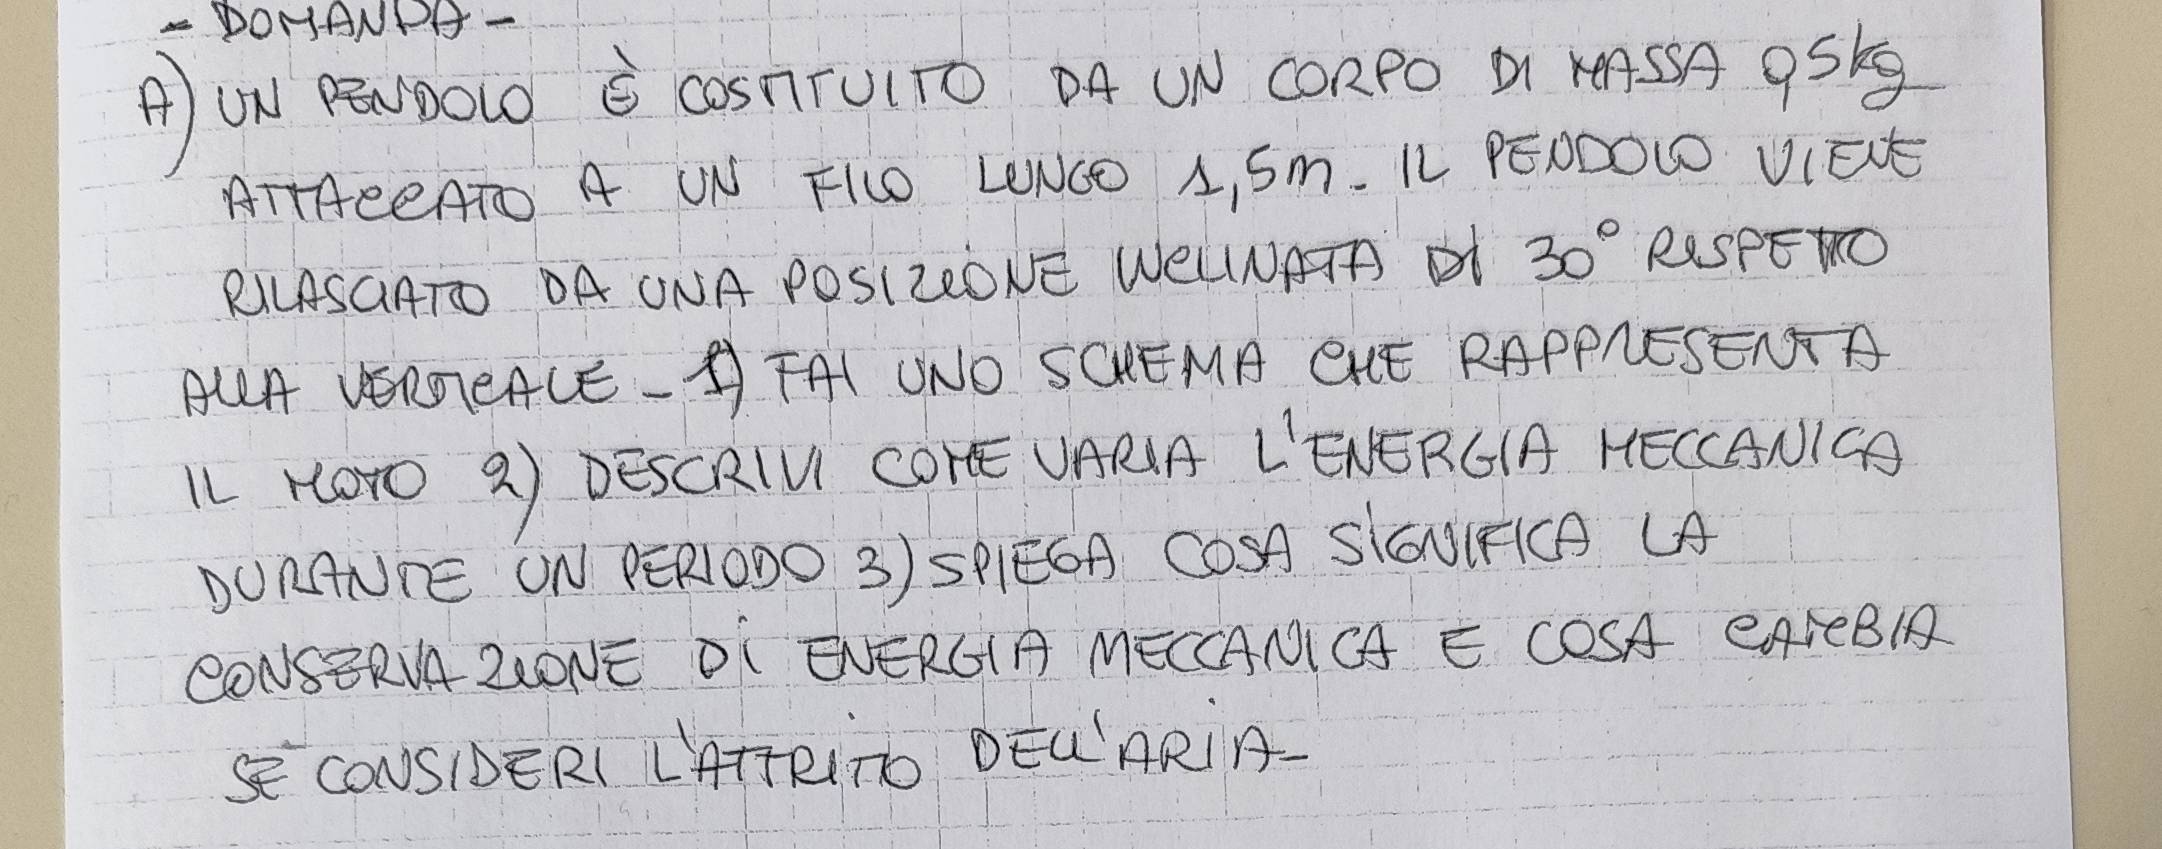 - DOMANDA -
A) UN PENDOLO È COSTITUITO DA UN CORPO DI MASSA 0,5kg
ATTACCATO A UN FILO LUNGO 1,5m. IL PENDOLO VIENE
RILASCIATO DA UNA POSIZIONE INCLINATA DI 30° RISPETTO
ALLA VERTICALE - 1) FAI UNO SCHEMA CHE RAPPRESENTA
IL MOTO 2) DESCRIVI COME VARIA L'ENERGIA MECCANICA
DURANTE UN PERIODO 3) SPIEGA COSA SIGNIFICA LA
CONSERVAZIONE DI ENERGIA MECCANICA E COSA CAMBIA
SE CONSIDERI L'ATTRITO DELL'ARIA -